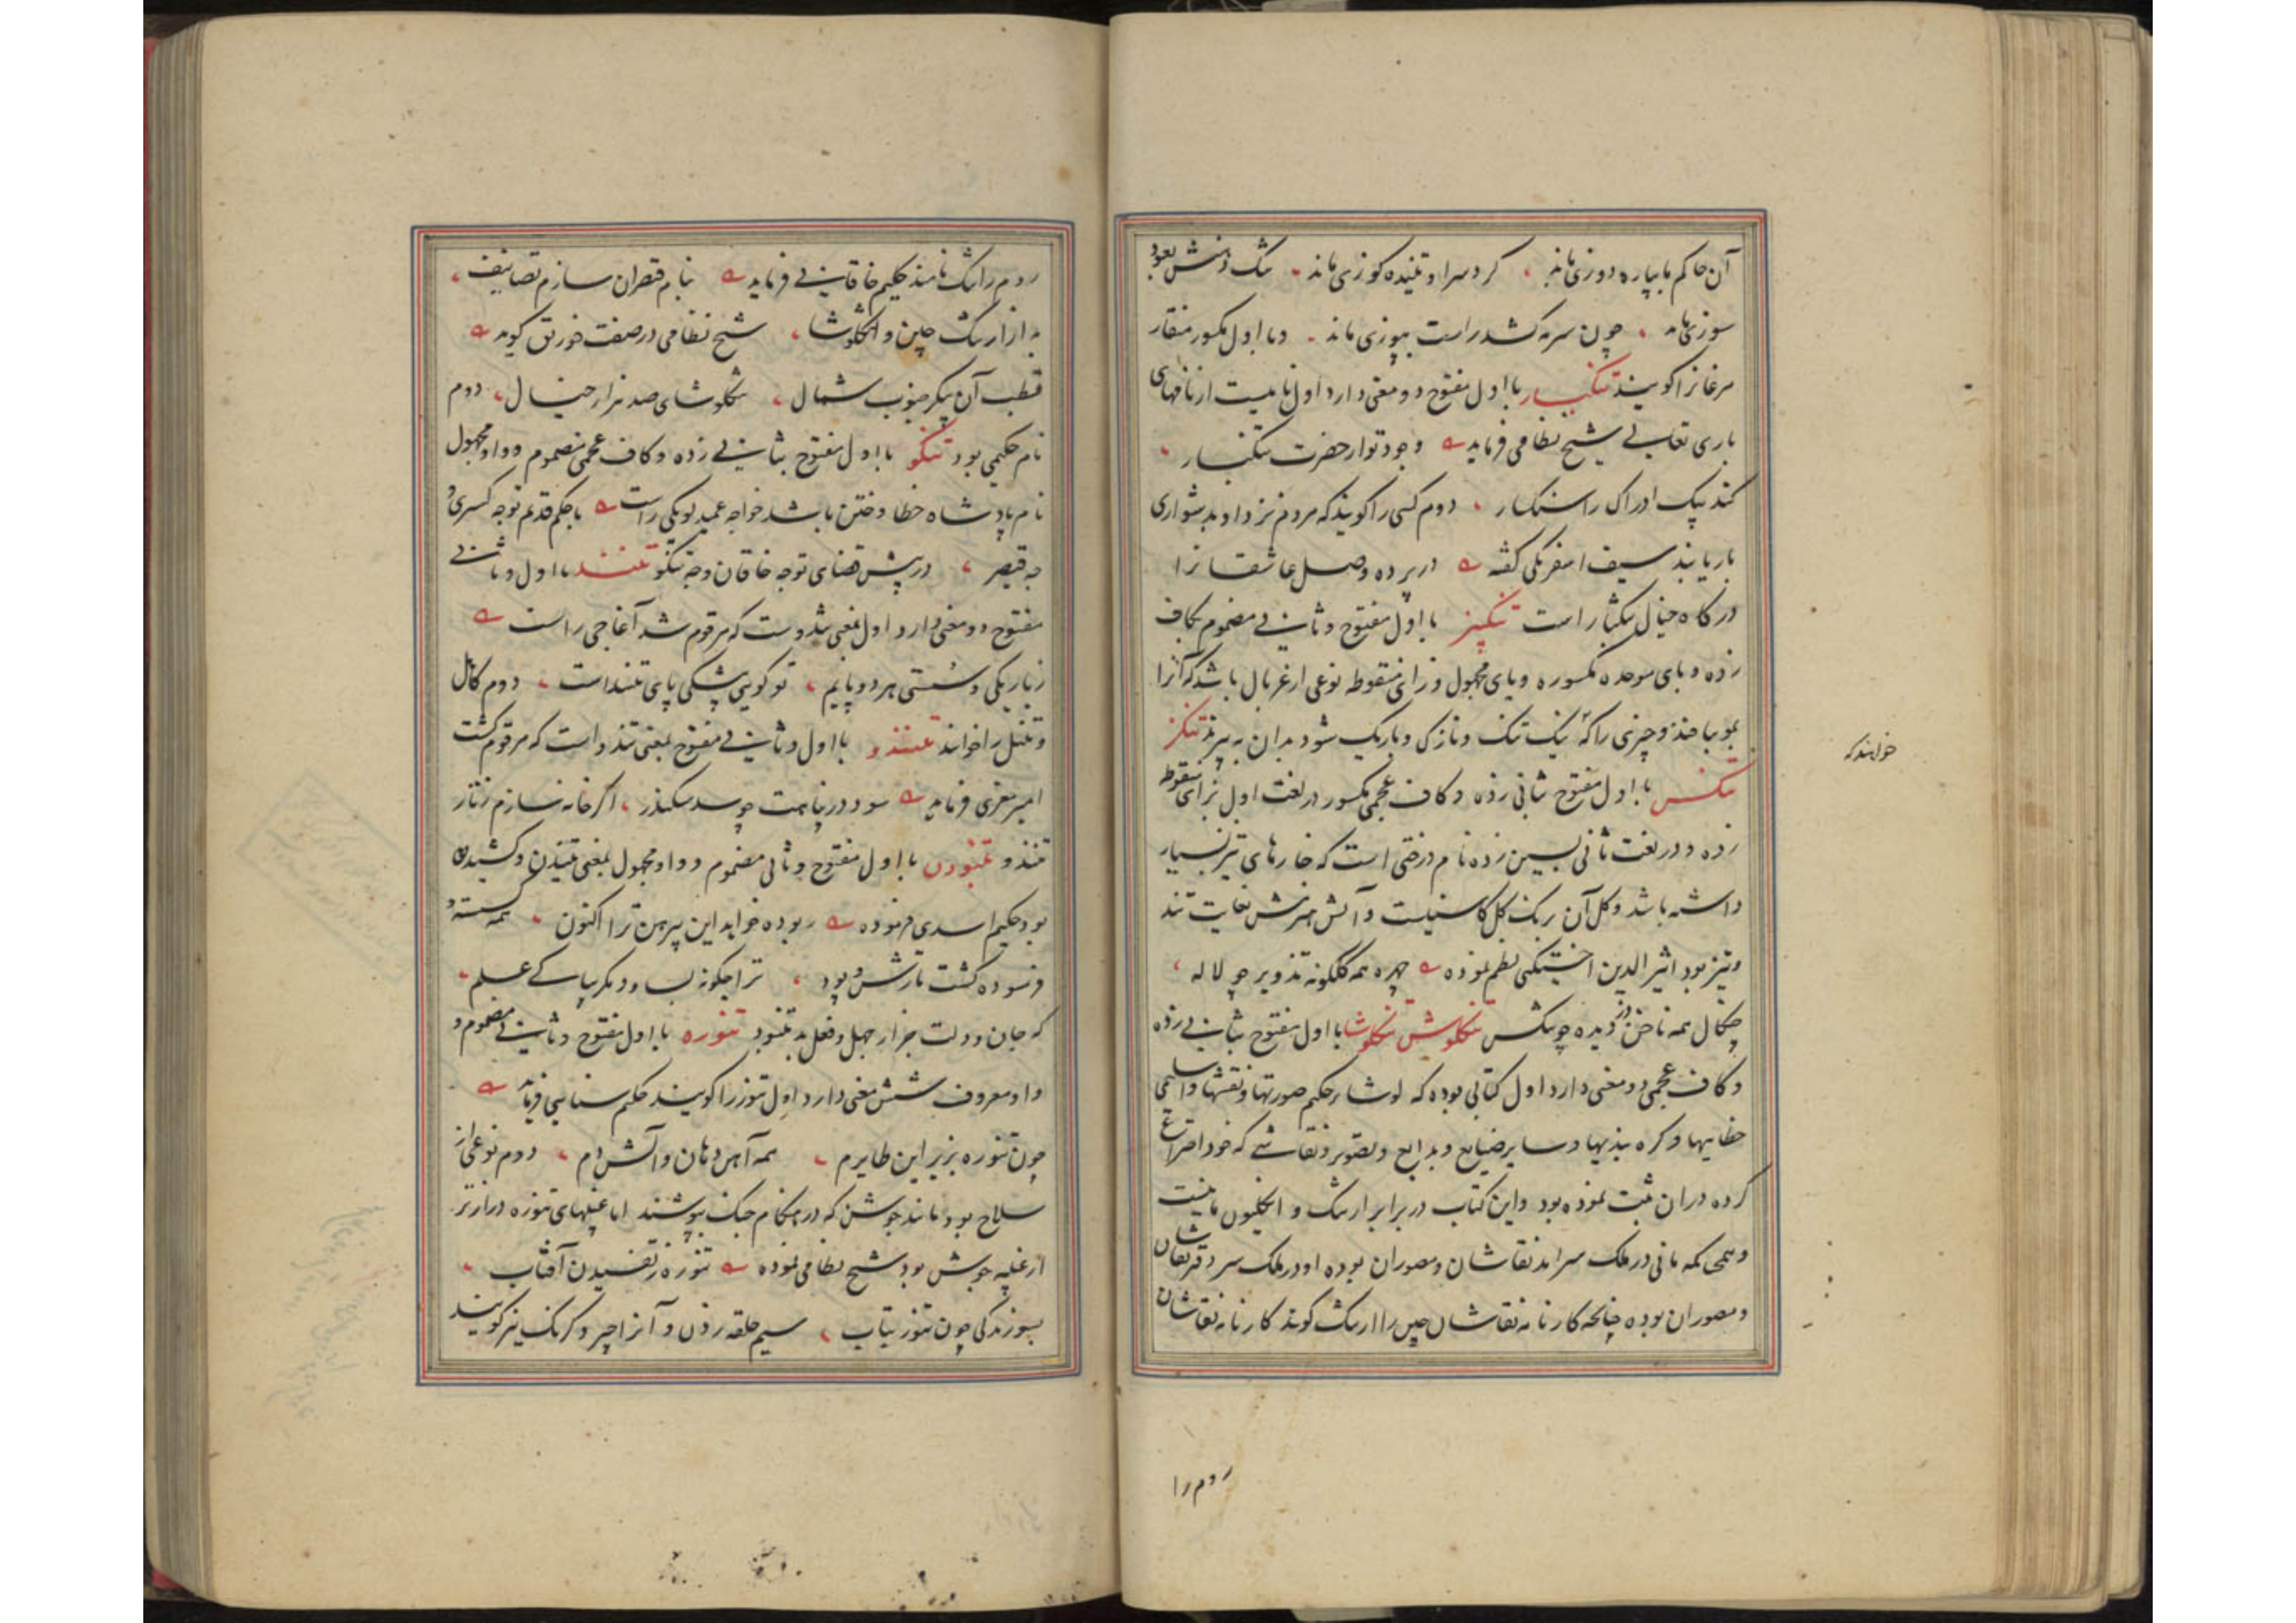 آن حاکم ما بپاره دوزی ماند ، کرد سرا و تنیده کوزی ماند
سوزنی ماند ، چون سرمه کشد راست بپوزی ماند ۔ و با اول مکسور منقار
مرغانرا کویند تنکبار با اول مفتوح دو معنی دارد اول نامیست از نامهای
باری تعالی شیخ نظامی فرماید وجود تو از حضرت تنکبار ،
کند پیک ادراک را سنکسار ، دوم کسی را کویند که مردم نزد او بدشواری
بار یابند سیف اسفرنکی کفته در پرده وصل عاشقانرا
درکاه خیال تنکبار است تنکبیز با اول مفتوح و ثانی مضموم بکاف
زده و بای موحده مکسوره و یای مجهول و زای منقوطه نوعی از غربال باشد که آنرا
بمو ببافند و چیزی را که نیک تنک و نازک و باریک شود بدان به بیزند تنکز
خوانند که
تنکس با اول مفتوح بثانی زده و کاف عجمی مکسور در لغت اول بزای منقوطه
زده و در لغت ثانی بسین زده نام درختی است که خارهای تیز بسیار
داشته باشد و کل آن برنک کل کاسنیست و آتش هیزمش بغایت تند
و تیز بود اثیر الدین اخسیکتی نظم نموده چهره همه کلکونه تذویر چو لاله ،
چنکال همه ناخن دز دیده چو تنکس تنکلوش تنکلوشا با اول مفتوح بثانی زده
و کاف عجمی دو معنی دارد اول کتابی بوده که لوشا حکیم صورتها و نقشها و اسامی
خطاییها و کره بندیها و سایر صنایع و بدایع و تصویر و نقاشی که خود اختراع
کرده دران ثبت نموده بود و این کتاب در برابر ارتنک و انکلیون مانیست
و همچنانکه مانی در ملک سرآمد نقاشان و مصوران بوده او در ملک سر دفتر نقاشان
و مصوران بوده چنانچه کارنامه نقاشان چین را ارتنک کویند کارنامه نقاشان
روم را
روم را تنک نامند حکیم خاقانی فرماید بنام قیصران سازم تصانیف ،
به از ارتنک چین و تنکلوشا ، شیخ نظامی در صفت خورنق کوید
قطب آن پیکر جنوب شمال ، تنکلوشای صد هزار خیال ، دوم
نام حکیمی بود تنکو با اول مفتوح بثانی زده و کاف عجمی مضموم و واو مجهول
نام پادشاه خطا و ختن باشد خواجه عمید لوبکی راست با حکم قدیم تو چه کسری و
چه قیصر ، در پیش قضای تو چه خاقان و چه تنکو تنند با اول و ثانی
مفتوح دو معنی دارد اول بمعنی تندوست که مرقوم شد آغاجی راست
ز باریکی و سستی هر دو پایم ، تو کویی پشکی پای تنند است ، دوم کاهل
و تنبل را خوانند تنندو با اول و ثانی مفتوح بمعنی تندو است که مرقوم کشت
امیر معزی فرماید سود در نیابمت چو سد سکندر ، اکر خانه سازم ز تار
تنندو تنودن با اول مفتوح و ثانی مضموم و واو مجهول بمعنی تنیدن و کشیدن
بود حکیم اسدی فرموده ربوده خواهد این پیرهن ترا اکنون ، همه کسسته و
فرسوده کشت تارش و پود ، ترا چکونه بساود مکر بپاکی علم ،
که جان و دلت جز از جهل و فعل بد نتنود تنوره با اول مفتوح و ثانی مضموم و
واو معروف شش معنی دارد اول تنور را کویند حکیم سنایی فرماید
چون تنوره بزیر این طایرم ، همه آهن دهان و آتش دم ، دوم نوعی از
سلاح بود مانند جوشن که در هنکام جنک بپوشند اما غیبهای تنوره دراز تر
از غیبه جوشن بود شیخ نظامی نموده تنوره ز تفسیدن آفتاب ،
بسوزندکی چون تنور بتاب ، سیم حلقه زدن و آنرا چپر و کرنک نیز کویند